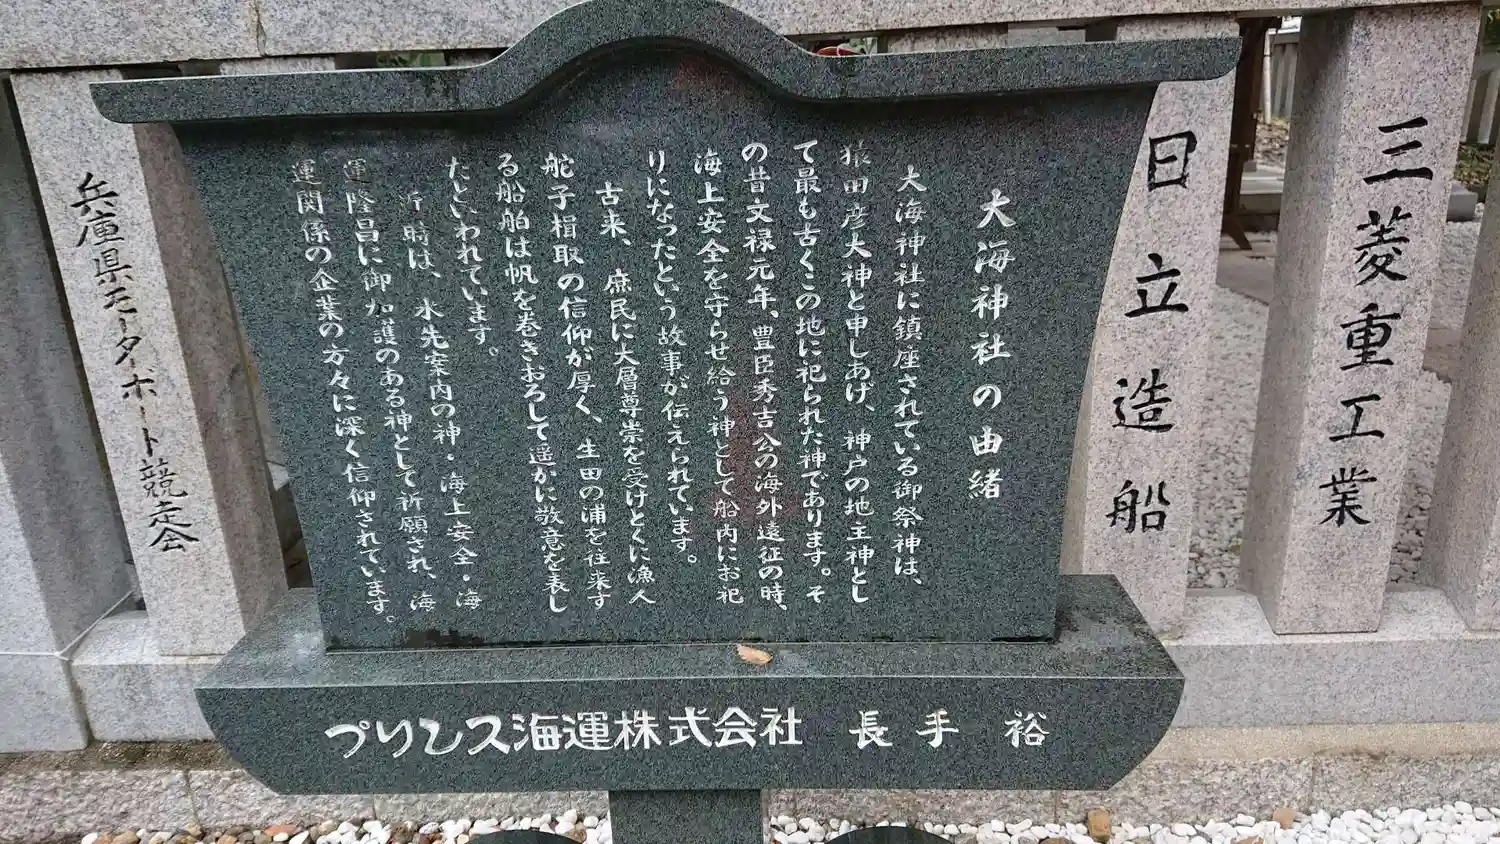 大海神社の由緒
大海神社に鎮座されている御祭神は、
猿田彦大神と申しあげ、神戸の地主神とし
て最も古くこの地に祀られた神であります。そ
の昔文禄元年、豊臣秀吉公の海外遠征の時、
海上安全を守らせ給う神として船内にお祀
りになったという故事が伝えられています。
古来、庶民に大層尊崇を受けとくに漁人
舵子楫取の信仰が厚く、生田の浦を往来す
る船舶は帆を巻きおろして遥かに敬意を表し
たといわれています。
近時は、水先案内の神・海上安全・海
運隆昌に御加護のある神として祈願され、海
運関係の企業の方々に深く信仰されています。
プリンス海運株式会社 長手 裕
三菱重工業
日立造船
兵庫県モーターボート競走会